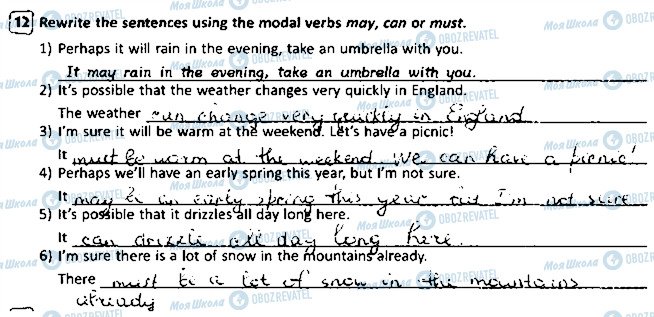 12 Rewrite the sentences using the modal verbs may, can or must.
1) Perhaps it will rain in the evening, take an umbrella with you.
It may rain in the evening, take an umbrella with you.
2) It's possible that the weather changes very quickly in England.
The weather can change very quickly in England
3) I'm sure it will be warm at the weekend. Let's have a picnic!
It must be warm at the weekend. We can have a picnic!
4) Perhaps we'll have an early spring this year, but I'm not sure.
It may be an early spring this year but I'm not sure
5) It's possible that it drizzles all day long here.
It can drizzle all day long here
6) I'm sure there is a lot of snow in the mountains already.
There must be a lot of snow in the mountains
already